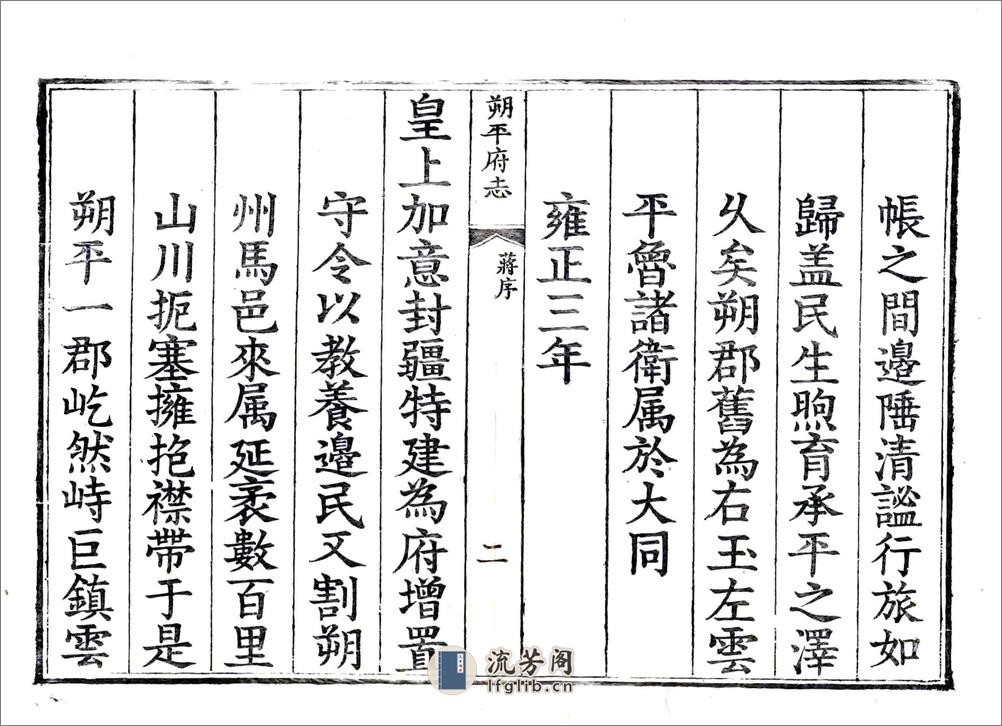 帳之間邊陲清謐行旅如
歸盖民生煦育承平之澤
乆矣朔郡舊為右玉左雲
平魯諸衛属於大同
雍正三年
朔平府志
蔣序
二
皇上加意封疆特建為府增置
守令以教養邊民又割朔
州馬邑來属延袤數百里
山川扼塞擁抱襟帶于是
朔平一郡屹然峙巨鎮雲
流芳阁
lfglib.cn